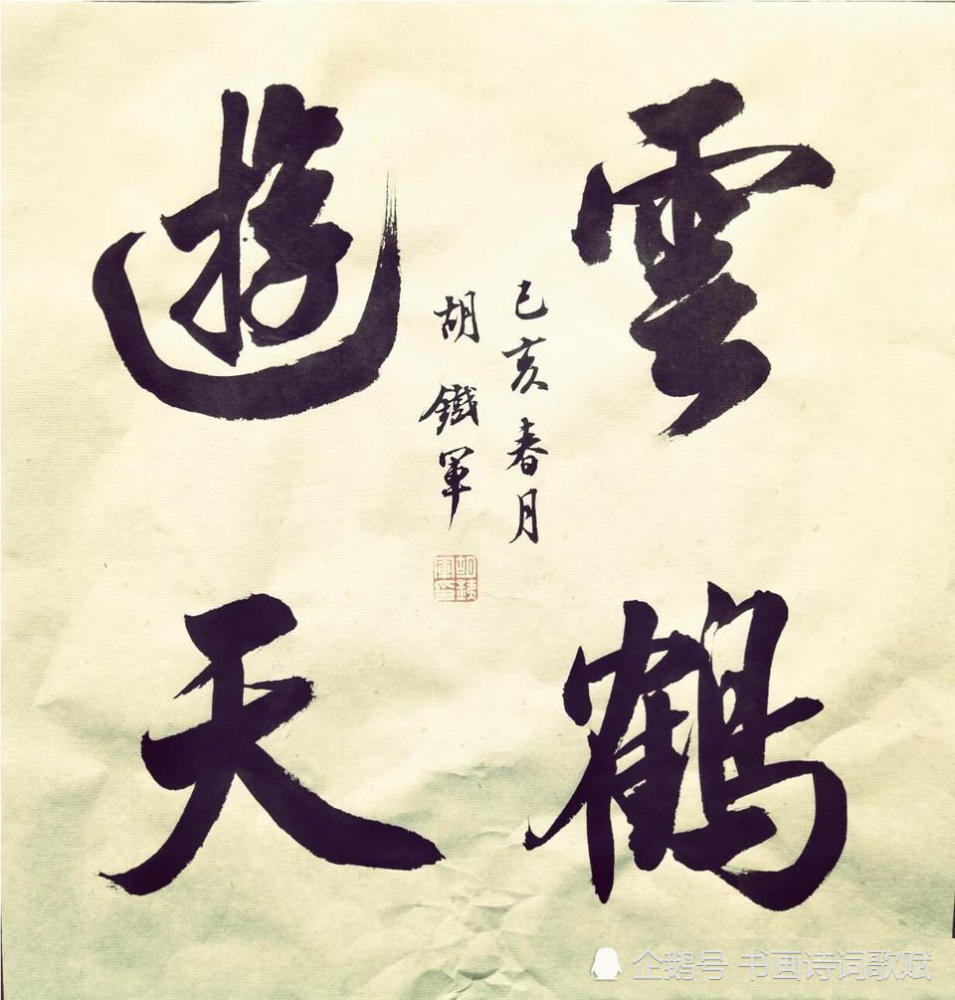 雲鶴
遊天
己亥春月
胡鐵軍
企鹅号 书画诗词歌赋